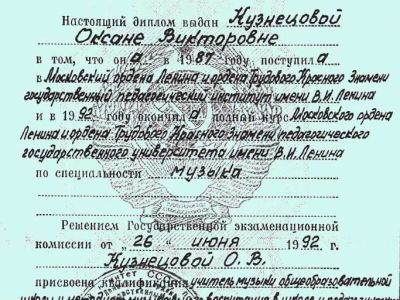 Настоящий диплом выдан Кузнецовой
Оксане Викторовне
в том, что она в 1987 году поступила
в Московский ордена Ленина и ордена Трудового Красного Знамени
государственный педагогический институт имени В.И. Ленина
и в 1992 году окончила полный курс Московского ордена
Ленина и ордена Трудового Красного Знамени педагогического
государственного университета имени В.И. Ленина
по специальности музыка
Решением Государственной экзаменационной
комиссии от „26" июня 1992 г.
Кузнецовой О. В.
присвоена квалификация учитель музыки общеобразовательной
школы и воспитания в школе и